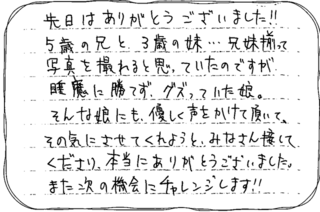 先日はありがとうございました!!
5歳の兄と、3歳の妹…兄妹揃って
写真を撮れると思っていたのですが
睡魔に勝てず、グズっていた娘。
そんな娘にも、優しく声をかけて頂いて、
その気にさせてくれようと、みなさん接して
くださり、本当にありがとうございました。
また次の機会にチャレンジします!!